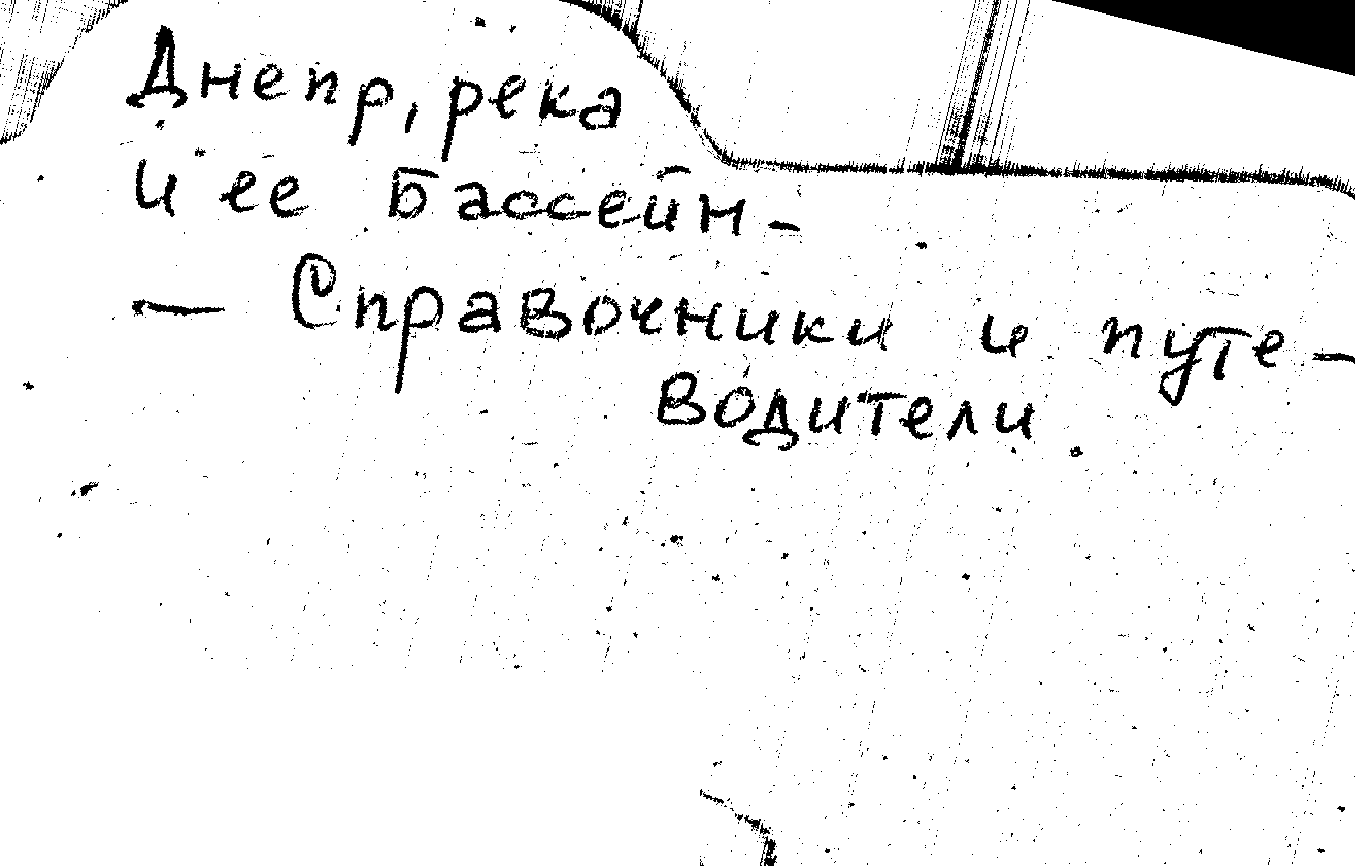 Днепр, река
и ее бассейн -
— Справочники и путе-
водители.